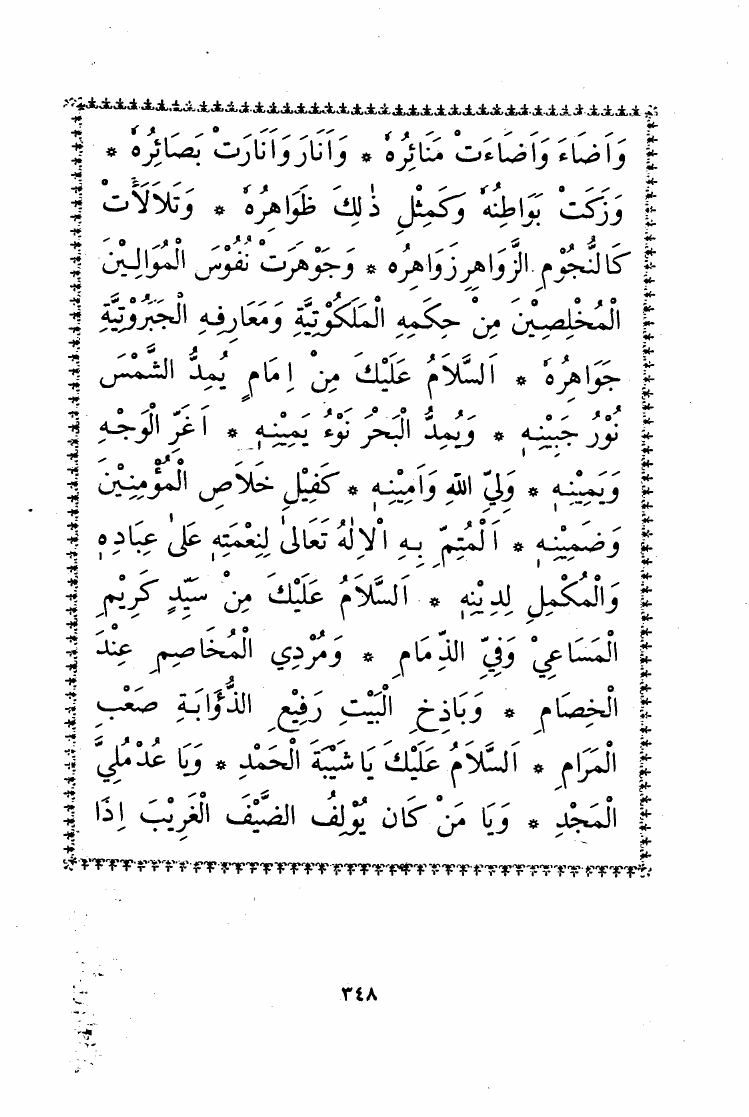 وَاَضَاءَ وَاَضَاءَتْ مَنَائِرُهٗ * وَاَنَارَ وَاَنَارَتْ بَصَائِرُهٗ *
وَزَكَتْ بَوَاطِنُهٗ وَكَمِثْلِ ذٰلِكَ ظَوَاهِرُهٗ * وَتَلَأْلَأَتْ
كَالنُّجُوْمِ الزَّوَاهِرِ زَوَاهِرُه * وَجَوْهَرَتْ نُفُوْسَ الْمُوَالِيْنَ
الْمُخْلِصِيْنَ مِنْ حِكَمِهِ الْمَلَكُوْتِيَّةِ وَمَعَارِفِهِ الْجَبَرُوْتِيَّةِ
جَوَاهِرُهٗ * اَلسَّلَامُ عَلَيْكَ مِنْ اِمَامٍ يُمِدُّ الشَّمْسَ
نُوْرُ جَبِيْنِهٖ * وَيُمِدُّ الْبَحْرَ نَوْءُ يَمِيْنِهٖ * اَغَرِّ الْوَجْهِ
وَيَمِيْنِهٖ * وَلِيِّ اللهِ وَاَمِيْنِهٖ * كَفِيْلِ خَلَاصِ الْمُؤْمِنِيْنَ
وَضَمِيْنِهٖ * اَلْمُتِمِّ بِهِ الْاِلٰهُ تَعَالىٰ لِنِعْمَتِهٖ عَلىٰ عِبَادِهٖ
وَالْمُكْمِلِ لِدِيْنِهٖ * اَلسَّلَامُ عَلَيْكَ مِنْ سَيِّدٍ كَرِيْمِ
الْمَسَاعِيْ وَفِيِّ الذِّمَامِ * وَمُرْدِي الْمُخَاصِمِ عِنْدَ
الْخِصَامِ * وَبَاذِخِ الْبَيْتِ رَفِيْعِ الذُّؤَابَةِ صَعْبِ
الْمَرَامِ * اَلسَّلَامُ عَلَيْكَ يَا شَيْبَةَ الْحَمْدِ * وَيَا عُدْمُلِيَّ
الْمَجْدِ * وَيَا مَنْ كَان يُوْلِفُ الضَّيْفَ الْغَرِيْبَ اِذَا
٣٤٨